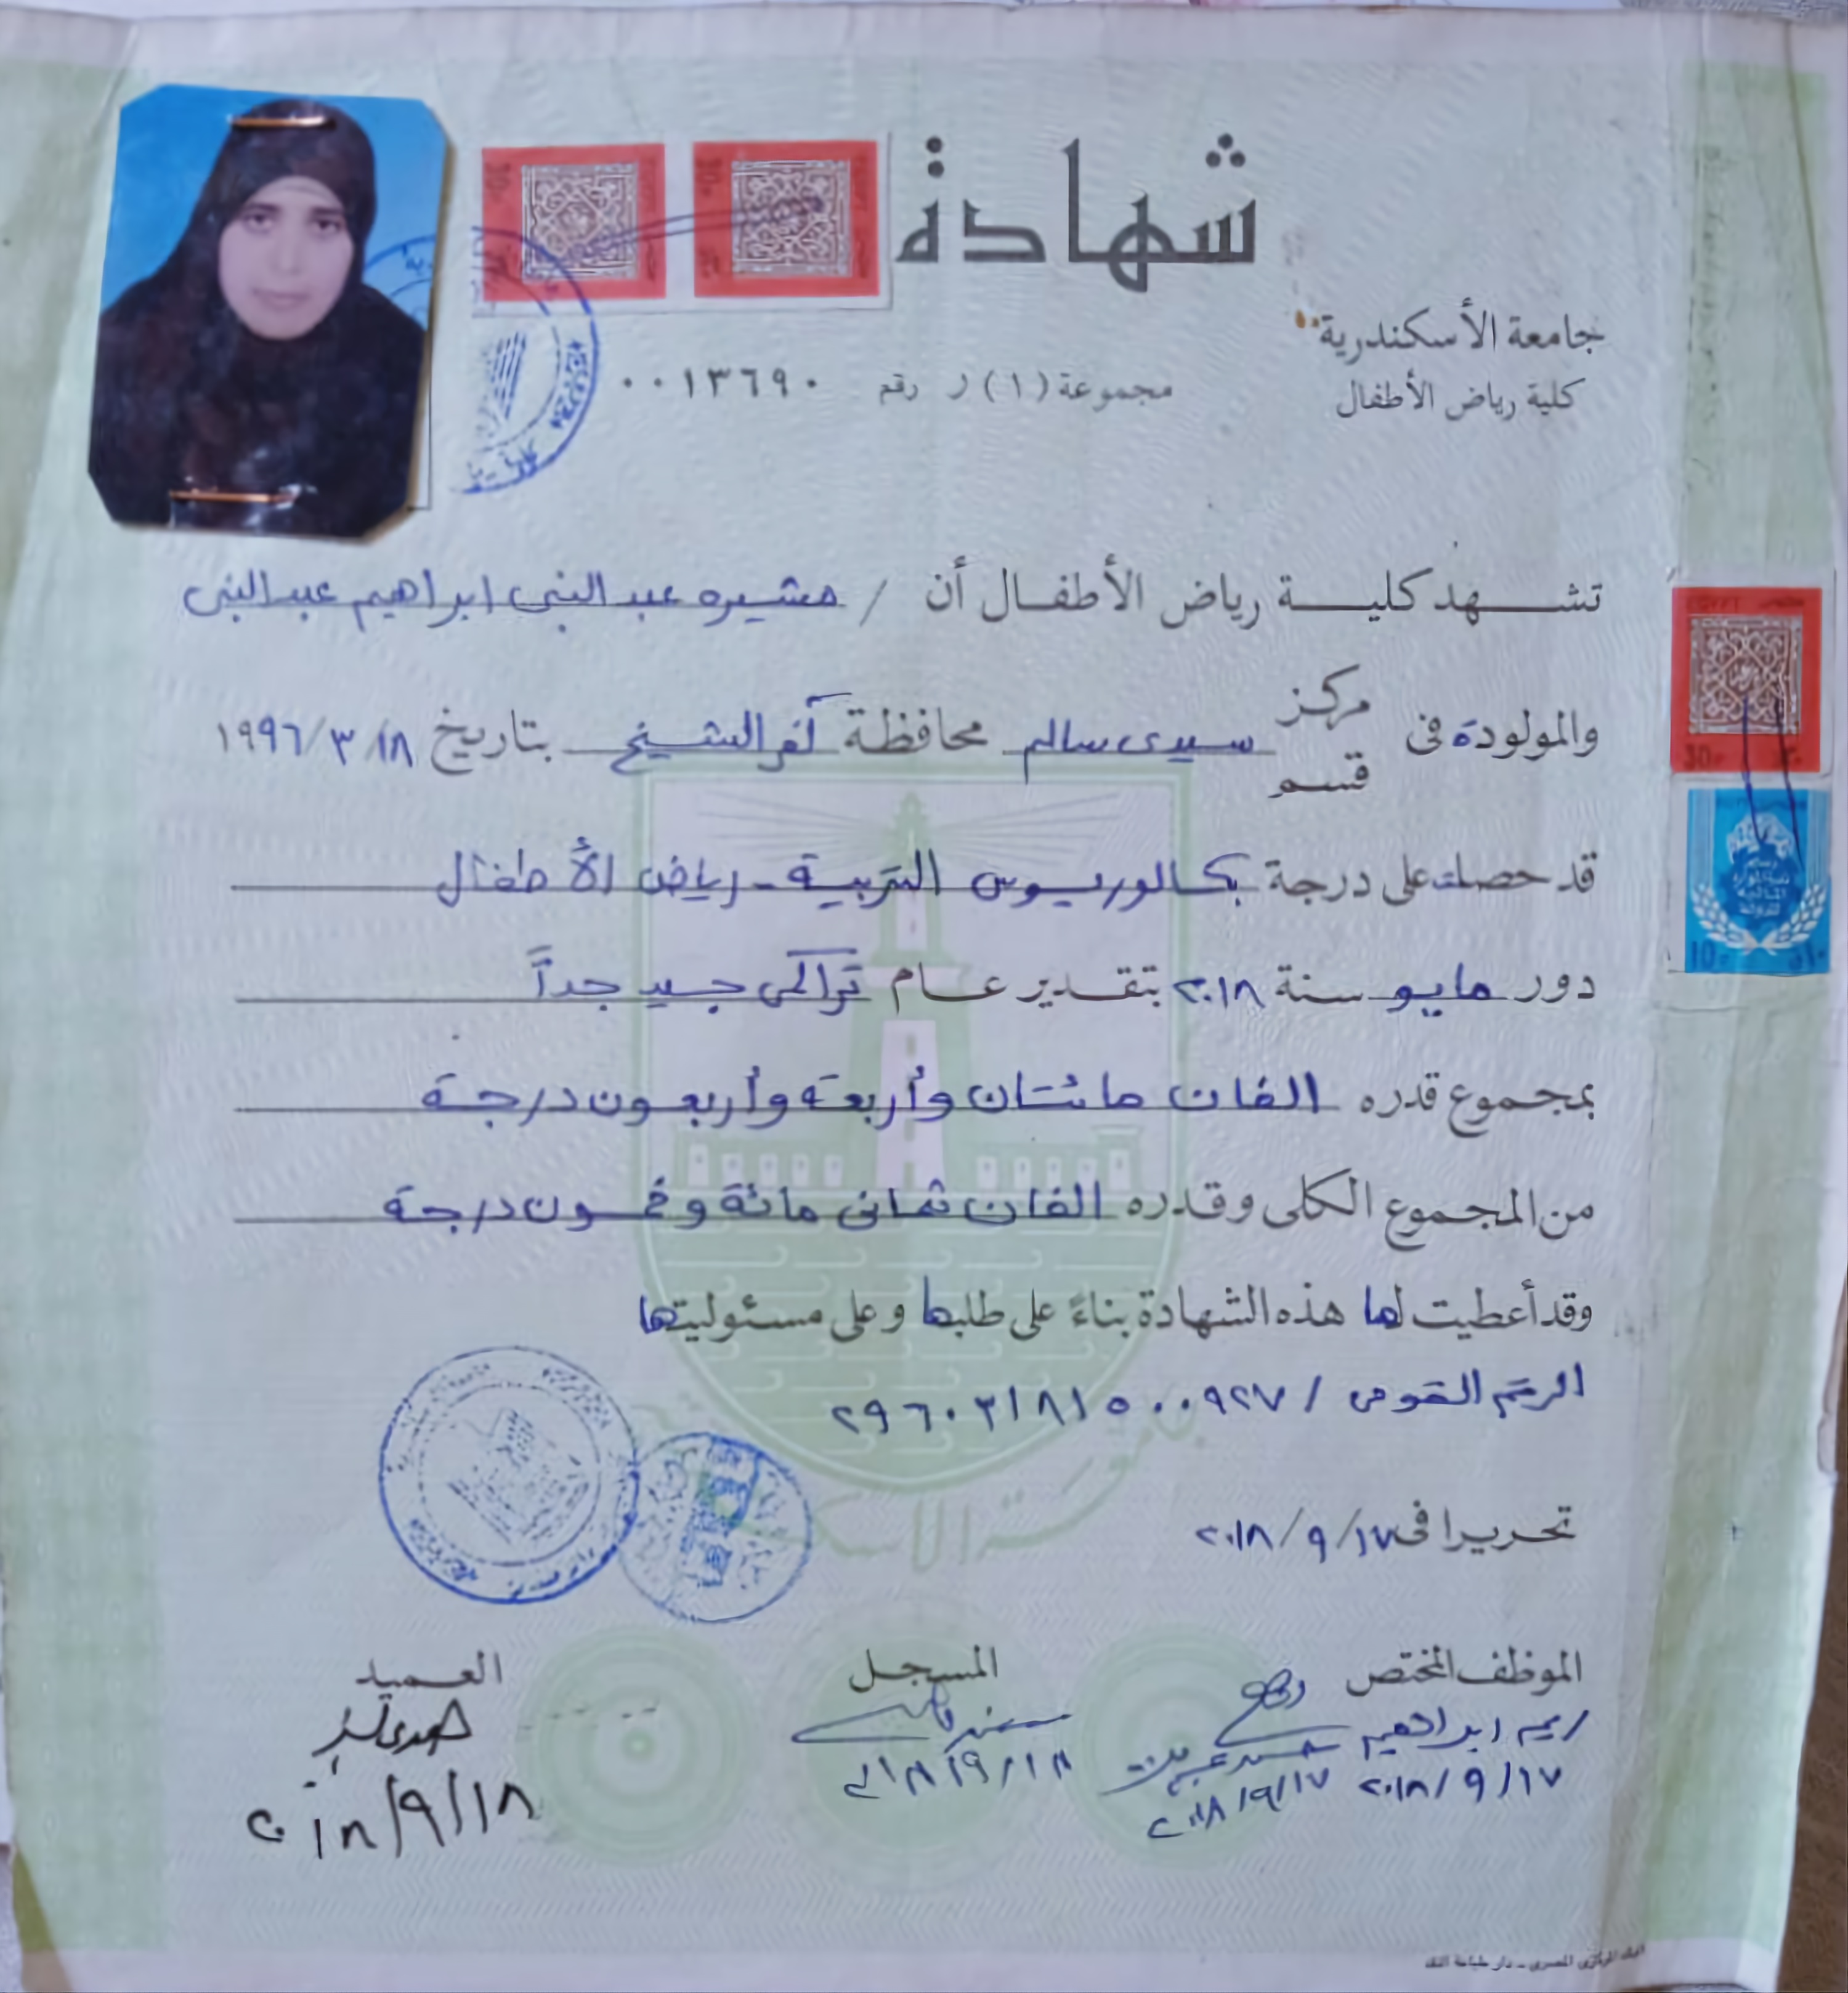 شهادة
جامعة الأسكندرية
كلية رياض الأطفال
مجموعة (١) ر رقم ٠٠١٣٦٩٠
تشهد كلية رياض الأطفال أن / مشيره عبد النبى ابراهيم عبد النبى
والمولودة فى مركز قسم سيدى سالم محافظة كفر الشيخ بتاريخ ١٨/٣/١٩٩٦
قد حصلت على درجة بكالوريوس التربية - رياض الأطفال
دور مايو سنة ٢٠١٨ بتقدير عام تراكمى جيد جداً
بمجموع قدره الفان مائتان وأربعة وأربعون درجة
من المجموع الكلى وقدره الفان ثمانى مائة وخمسون درجة
وقد أعطيت لها هذه الشهادة بناءً على طلبها وعلى مسئوليتها
الرقم القومى / ٢٩٦٠٣١٨١٥٠٠٩٢٧
تحريرا فى ١٧/٩/٢٠١٨
الموظف المختص المسجل العميد
ريم ابراهيم
٢٠١٨/٩/١٧ ٢٠١٨/٩/١٧ ٢٠١٨/٩/١٨ ٢٠١٨/٩/١٨
البنك المركزى المصرى - دار طباعة النقد